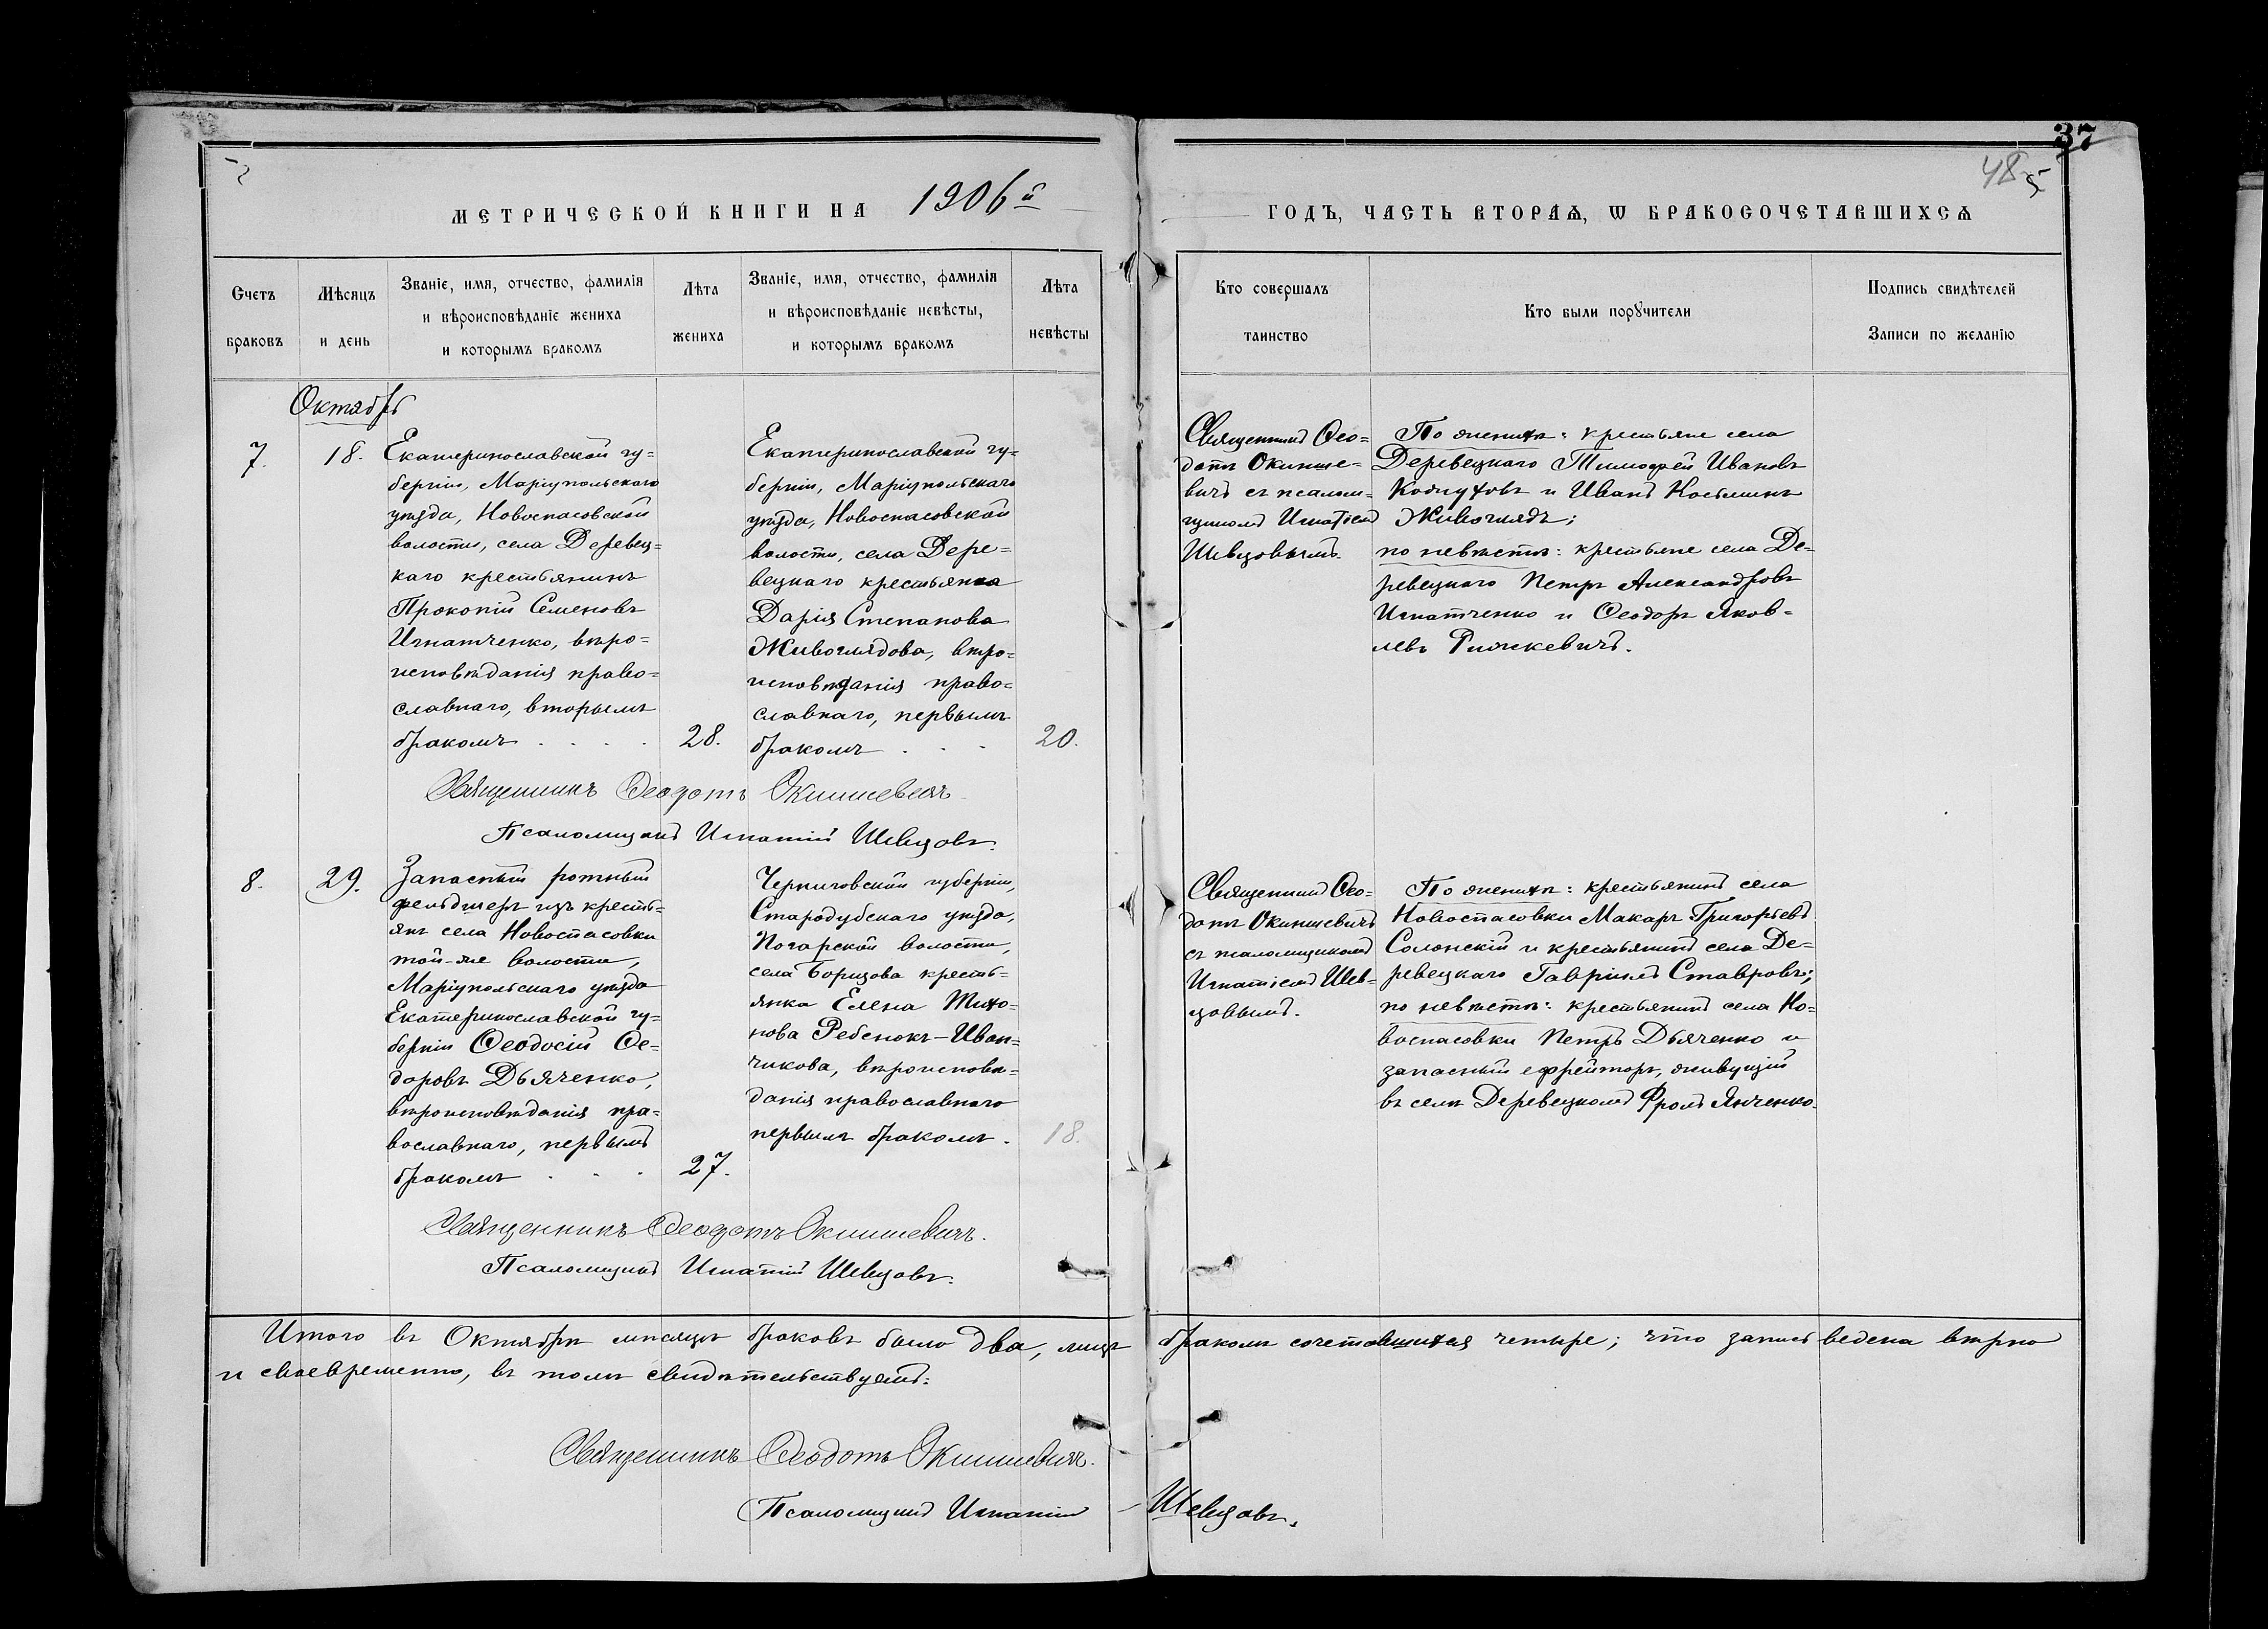 37
48
5
МЕТРИЧЕСКОЙ КНИГИ НА 1906й
ГОДЪ, ЧАСТЬ ВТОРАѦ, Ѡ БРАКОСОЧЕТАВШИХСѦ
Счетъ браковъ
Мѣсяцъ и день
Званіе, имя, отчество, фамилія
и вѣроисповѣданіе жениха
и которымъ бракомъ
Лѣта жениха
Званіе, имя, отчество, фамилія
и вѣроисповѣданіе невѣсты,
и которымъ бракомъ
Лѣта невѣсты
Кто совершалъ
таинство
Кто были порꙋчители
Подпись свидѣтелей
Записи по желанію
Октябрь
7.
18.
Екатеринославской гу=
берніи, Маріупольскаго
уѣзда, Новоспасовской
волости, села Деревец=
каго крестьянинъ
Прокопій Семеновъ
Игнатченко, вѣро=
исповѣданія право=
славнаго, вторымъ
бракомъ . . . .
28.
Екатеринославской гу=
берніи, Маріупольскаго
уѣзда, Новоспасовской
волости, села Дере=
вецкаго крестьянка
Дарія Степанова
Живоглядова, вѣро=
исповѣданія право=
славнаго, первымъ
бракомъ . . .
20.
Священникъ Ѳео=
дотъ Окинше=
вичъ съ псалом=
щикомъ Игнатіемъ
Шевцовымъ.
По женихѣ: крестьяне села
Деревецкаго Тимофей Ивановъ
и Иванъ Косьминъ
Живоглядъ;
по невѣстѣ: крестьяне села Де=
ревецкаго Петръ Александровъ
Игнатченко и Ѳеодоръ Яков=
левъ
Священникъ Ѳеодотъ Окиншевичъ
Псаломщикъ Игнатій Шевцовъ.
8.
29.
Запасный ротный
фельдшеръ изъ кресть=
янъ села Новоспасовки
той-же волости,
Маріупольскаго уѣзда
Екатеринославской гу=
берніи Ѳеодосій Ѳе=
доровъ Дьяченко,
вѣроисповѣданія пра=
вославнаго, первымъ
бракомъ . . .
27.
Черниговской губерніи,
Стародубскаго уѣзда,
Погарской волости,
села Борщова кресть=
янка Елена Тихо=
нова Ребенокъ-Иван=
чикова, вѣроисповѣ=
данія православнаго
первымъ бракомъ.
18.
Священникъ Ѳео=
дотъ Окиншевичъ
съ псаломщикомъ
Игнатіемъ Шев=
цовымъ.
По женихѣ: крестьянинъ села
Новоспасовки Макаръ Григорьевъ
Солонскій и крестьянинъ села Де=
ревецкаго Гавріилъ Ставровъ;
по невѣстѣ: крестьянинъ села Но=
воспасовки Петръ Дьяченко и
запасный ефрейторъ, живущій
въ селѣ Деревецкомъ Фролъ Янченко.
Священникъ Ѳеодотъ Окиншевичъ.
Псаломщикъ Игнатій Шевцовъ.
Итого въ Октябрѣ мѣсяцѣ браковъ было два, лицъ бракомъ сочетавшихся четыре; что запись ведена вѣрно
и своевременно, въ томъ свидѣтельствуемъ:
Священникъ Ѳеодотъ Окиншевичъ.
Псаломщикъ Игнатій Шевцовъ.